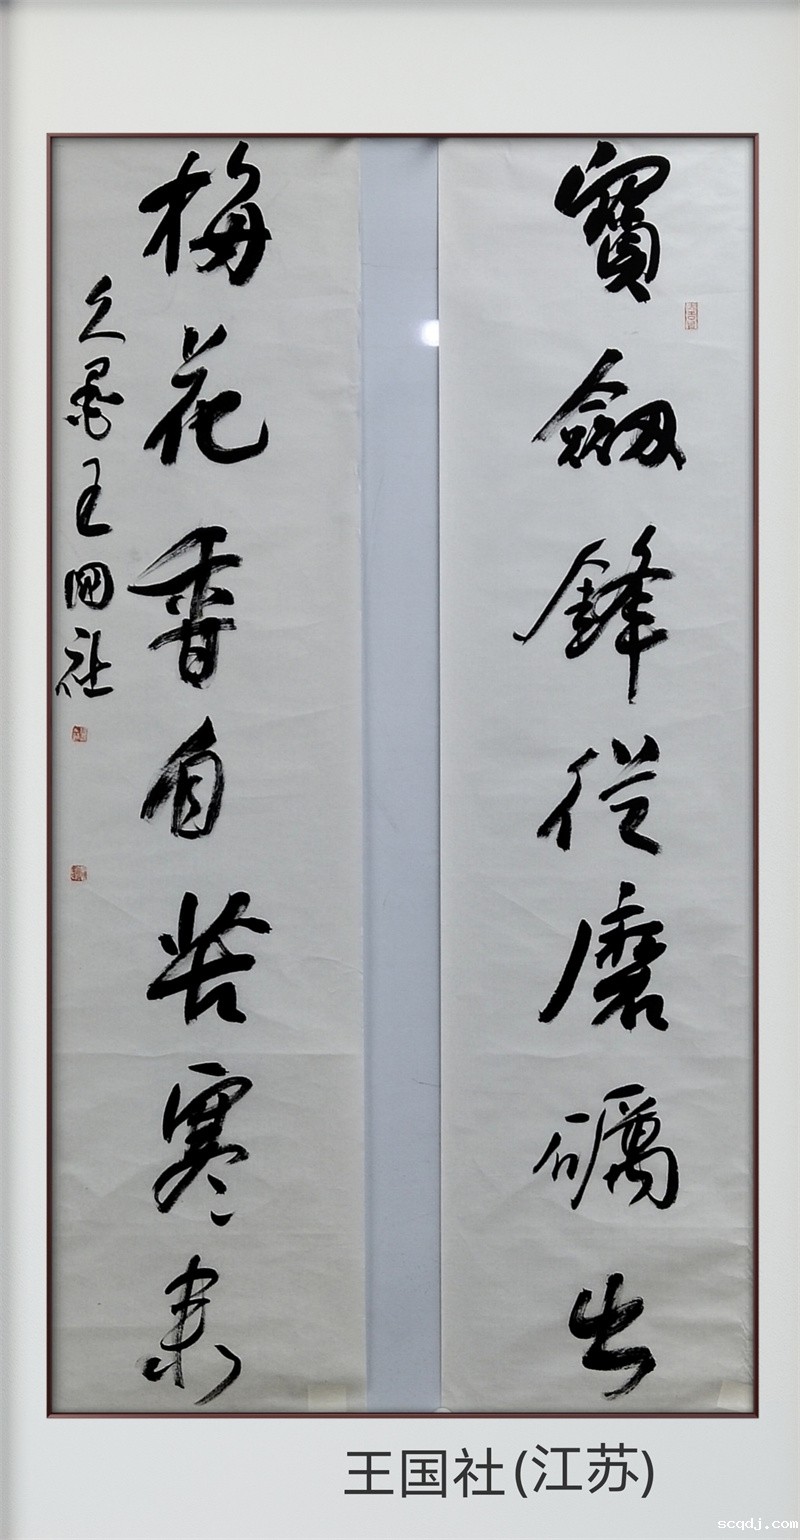 寶劔鋒從磨礪出
梅花香自苦寒來
久墨王國社
王国社(江苏)
scqdj.com